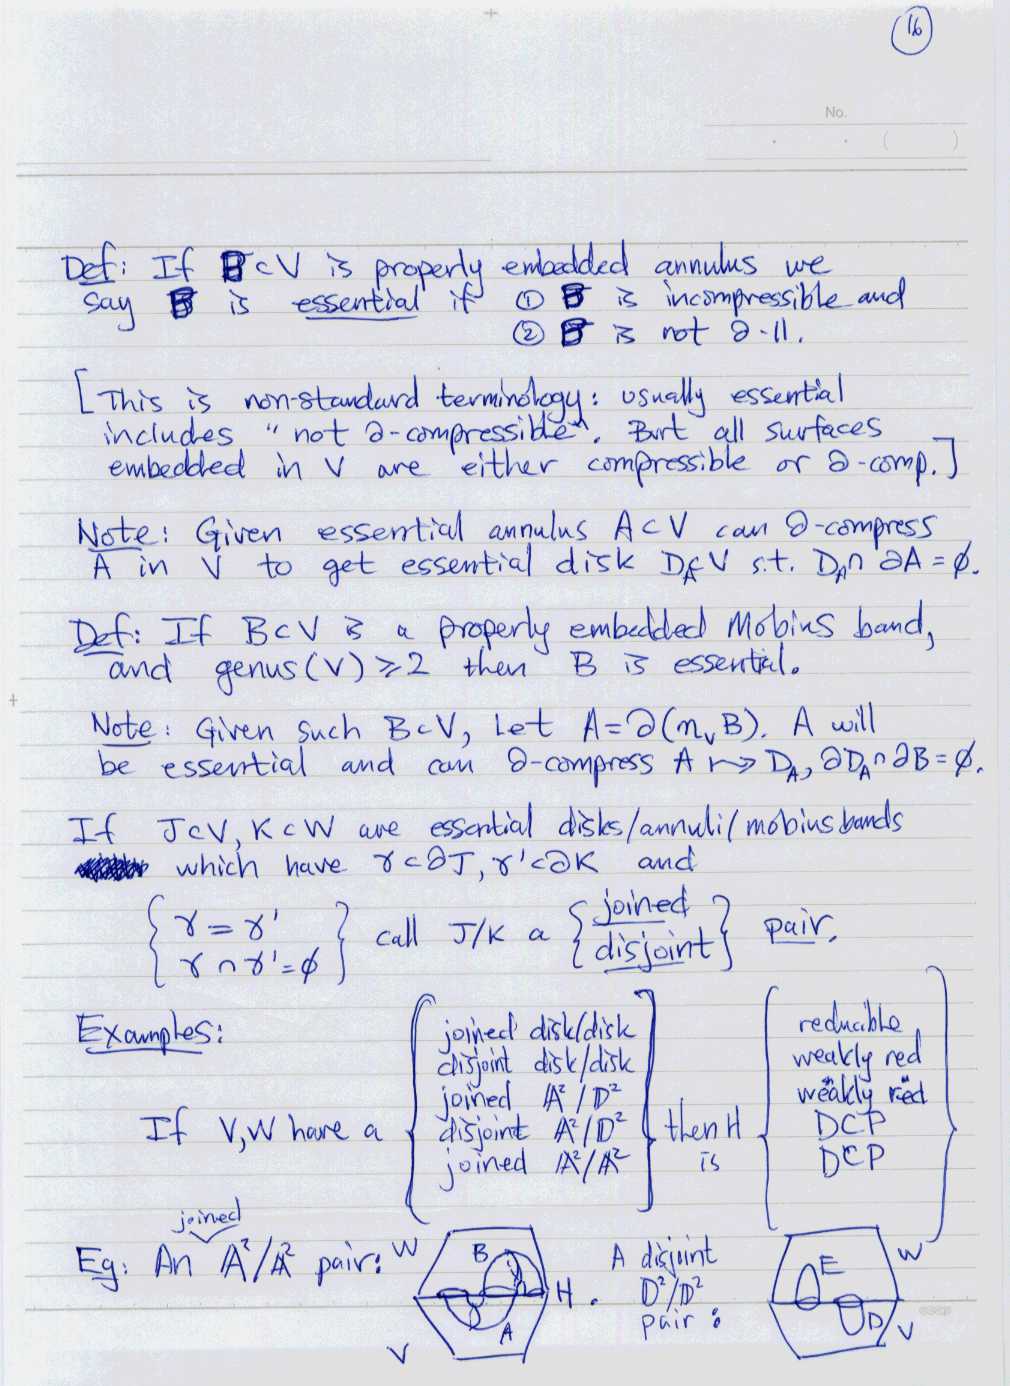 16
No.
Def: If B⊂V is properly embedded annulus we
say B is essential if ① B is incompressible and
② B is not ∂-11.
[This is non-standard terminology: usually essential
includes "not ∂-compressible". But all surfaces
embedded in V are either compressible or ∂-comp.]
Note: Given essential annulus A⊂V can ∂-compress
A in V to get essential disk D_A⊂V s.t. D_A∩∂A=∅.
Def: If B⊂V is a properly embedded Möbius band,
and genus(V)≥2 then B is essential.
Note: Given such B⊂V, Let A=∂(n_vB). A will
be essential and can ∂-compress A ⇝ D_A, ∂D_A∩∂B=∅.
If J⊂V, K⊂W are essential disks/annuli/mobius bands
which have γ⊂∂J, γ'⊂∂K and
{γ=γ' / γ∩γ'=∅} call J/K a {joined / disjoint} pair.
Examples:
If V,W have a
joined disk/disk
disjoint disk/disk
joined A²/D²
disjoint A²/D²
joined A²/A²
then H
is
reducible
weakly red
"weakly red"
DCP
DCP
Eg: An joined A²/A² pair:
W B H. A V
A disjoint
D²/D²
pair:
E W D V